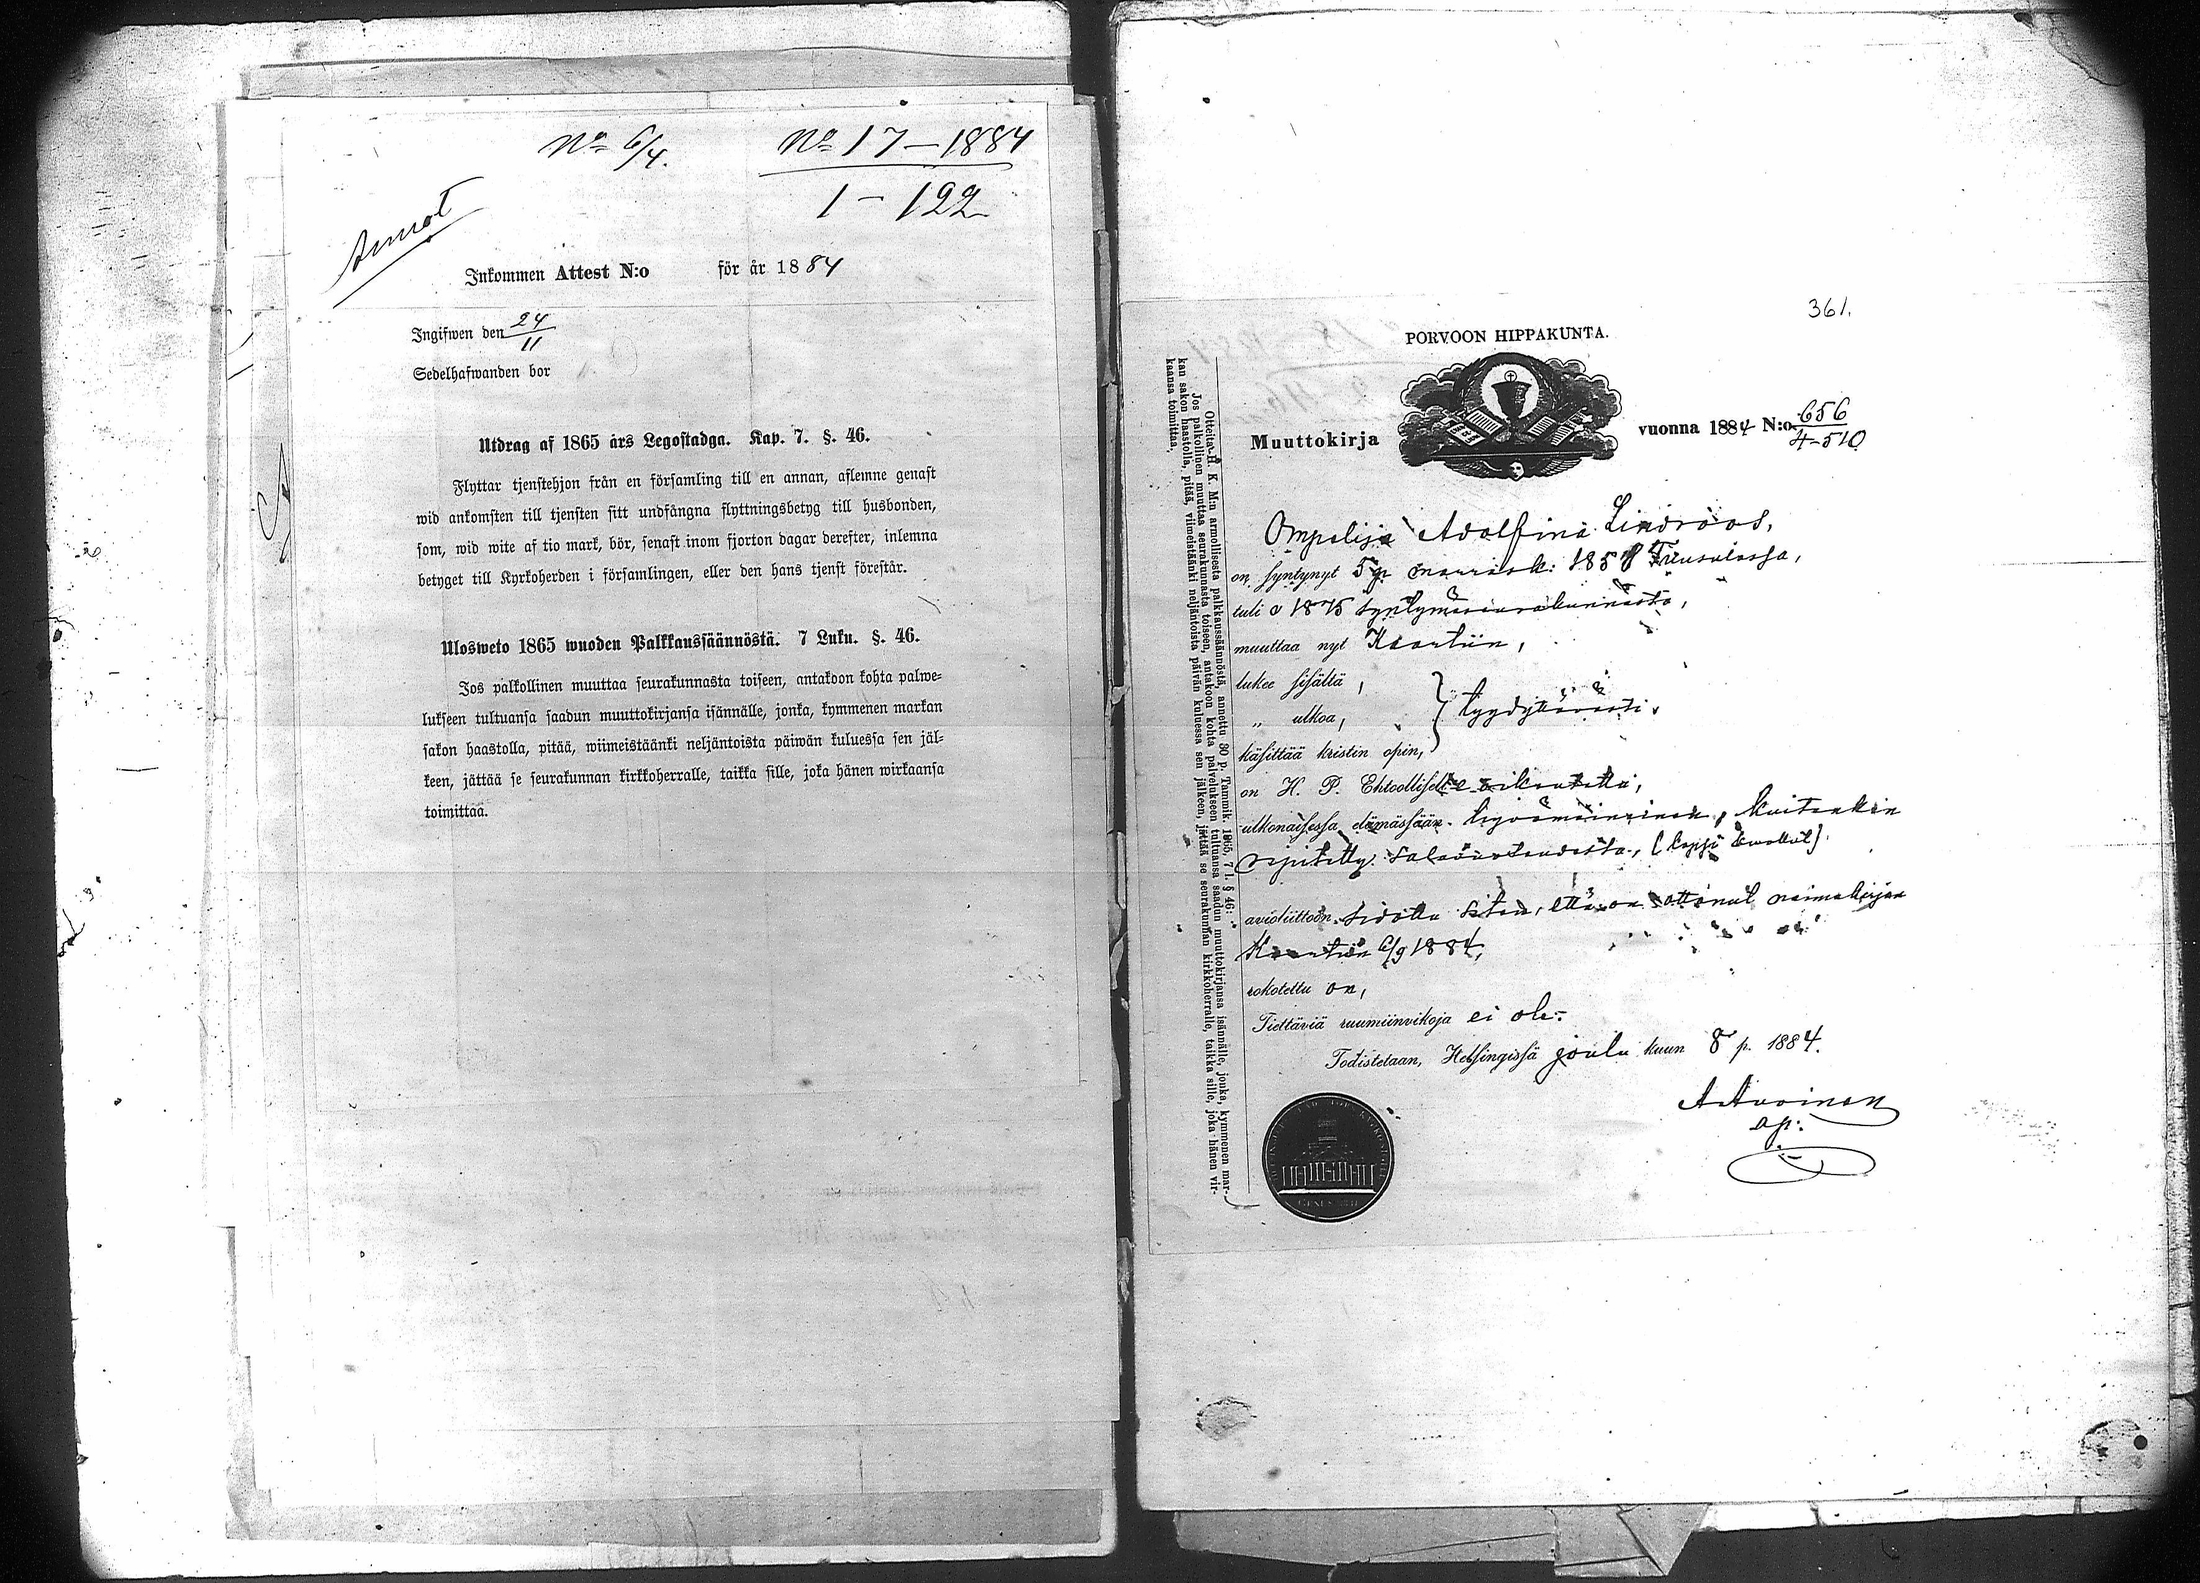 No 6/4.
No 17–1884
1–122
Annot
Inkommen Attest N:o för år 1884
Ingifwen den 24/11
Sedelhafwanden bor
Utdrag af 1865 års Legostadga. Kap. 7. §. 46.
Flyttar tjenstehjon från en församling till en annan, aflemne genast
wid ankomsten till tjensten sitt undfångna flyttningsbetyg till husbonden,
som, wid wite af tio mark, bör, senast inom fjorton dagar derefter, inlemna
betyget till Kyrkoherden i församlingen, eller den hans tjenst förestår.
Ulosweto 1865 wuoden Palkkaussäännöstä. 7 Luku. §. 46.
Jos palkollinen muuttaa seurakunnasta toiseen, antakoon kohta palwe-
lukseen tultuansa saadun muuttokirjansa isännälle, jonka, kymmenen markan
sakon haastolla, pitää, wiimeistäänki neljäntoista päiwän kuluessa sen jäl-
keen, jättää se seurakunnan kirkkoherralle, taikka sille, joka hänen wirkaansa
toimittaa.
361.
PORVOON HIPPAKUNTA.
Muuttokirja vuonna 1884 N:o 656
4-510
Ompelija Adolfina Lindroos,
on syntynyt 5 p. marrask: 1857 Tuusulassa,
tuli v 1875 syntymäseurakunnasta,
muuttaa nyt Kaartiin,
lukee sisältä,
„ ulkoa, } tyydyttävästi.
käsittää kristin opin,
on H. P. Ehtoolliselle oikeutettu,
ulkonaisessa elämässään kuitenkin
ripitetty salavuoteudesta, (lapsi kuollut).
avioliittoon sidottu siten, että on ottanut naimakirjan
Kaartiin 6/9 1884,
rokotettu on,
Tiettäviä ruumiinvikoja ei ole.
Todistetaan, Helsingissä joulu kuun 8 p. 1884.
A. Auvinen
ap:
Otteita H. K. M:n armollisesta palkkaussäännöstä, annettu 30 p. Tammik. 1865, 7 l. § 46:
Jos palkollinen muuttaa seurakunnasta toiseen, antakoon kohta palvelukseen tultuansa saadun muuttokirjansa isännälle, jonka, kymmenen mar-
kan sakon haastolla, pitää, viimeistäänki neljäntoista päivän kuluessa sen jälkeen, jättää se seurakunnan kirkkoherralle, taikka sille, joka hänen vir-
kaansa toimittaa.